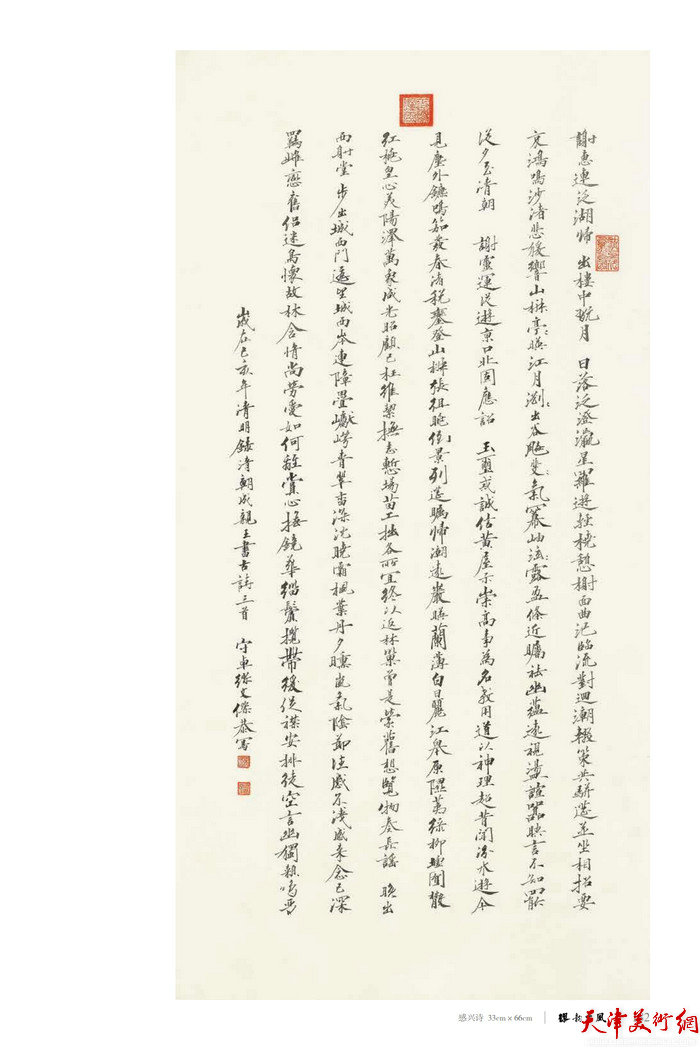 謝惠連泛湖歸 出樓中翫月 日落泛澄瀛星羅遊輕橈憩榭面曲汜臨流對迴潮輟策共駢筵並坐相招要
哀鴻鳴沙渚悲猨響山椒亭〻暎江月瀏〻出谷飈斐〻氣冪岫泫〻露盈條近矚袪幽蘊遠視盪諠嚻晤言不知罷
從夕至清朝 謝靈運從遊京口北固應詔 玉璽戒誠信黃屋示崇高事為名教用道以神理超昔聞汾水遊今
見塵外鑣鳴笳發春渚稅鑾登山椒張組眺倒景列筵矚歸潮遠巖暎蘭薄白日麗江皋原隰荑綠柳墟囿散
紅桃皇心美陽澤萬象咸光昭顧己枉維縶撫志慙場苗工拙各所宜終以返林巢曾是縈舊想覽物奏長謠 晚出
西射堂 步出城西門遙望城西岑連障疊巘崿青翠杳深沈曉霜楓葉丹夕曛嵐氣陰節往慼不淺感來念已深
羈雌戀舊侶迷鳥懷故林含情尚勞愛如何離賞心撫鏡華緇鬢攬帶緩促襟安排徒空言幽獨賴鳴琴
歲在己亥年清明錄清朝成親王書古詩三首 守卓張文傑恭寫
感兴诗 33cm×66cm
天津美術網